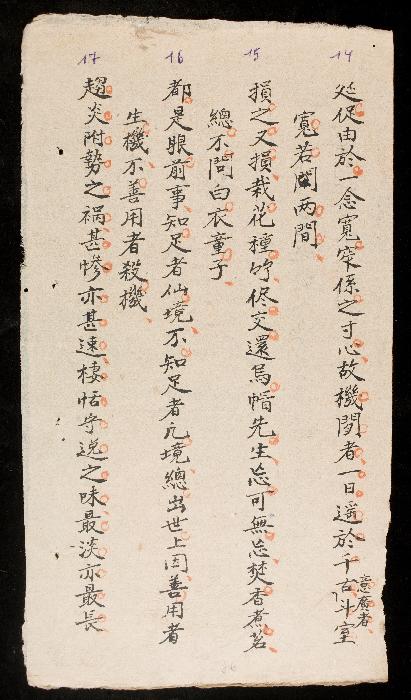 14
延促由於一念寬窄係之寸心故機閒者一日遥於千古斗室
意廣者
寬若两間
15
損之又損栽花種竹侭交還烏帽先生忘可無忘焚香煮茗
總不問白衣童子
16
都是眼前事知足者仙境不知足者凡境總出世上因善用者
生機不善用者殺機
17
趨炎附勢之禍甚惨亦甚速棲恬守逸之味最淡亦最長